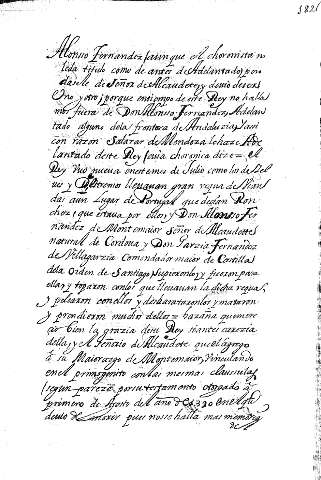 Alonso Fernandez, aunque el choronista no
le da titulo como de antes de Adelantado, por
de Señor de Alcaudete, y deuio de ser
Uno y otro; porque en tiempo de este Rey no halla
mos fuera de Don Alonso Fernandez Adelan
tado alguno de la frontera de Andaluzia, y asi
con razon Salazar de Mendoza le haze Ade
lantado deste Rey, su choronica dize = el
Rey nueva en et mes de Julio como los de
y lleuauan gran requa de
das a un Lugar de Portugal que dezian Ron
ches; que estaua por ellos y Don Alonso Fer
nandez de Montemaior Señor de Alcaudete
natural de Cordoua y Don Garzia Fernandez
de Villagarzia Comendador maior de Castilla
de la Orden de Santiago supieronlo; y fueron para
ella, y toparon con los que lleuauan la dicha requa,
y pelearon con ellos y desbarataronlos y mataron
y prendieron muchos dellos = hazaña que mere
cio bien la grazia deste Rey
della, y el Señorio de Alcaudete que el agrego
a su Maiorazgo de Montemaior, Vinculando
en el primogenito con las mesmas clausulas
segun pareze por su testamento otorgado a
primero de Agosto del año de 1390 en el
de no se halla mas memoria
de